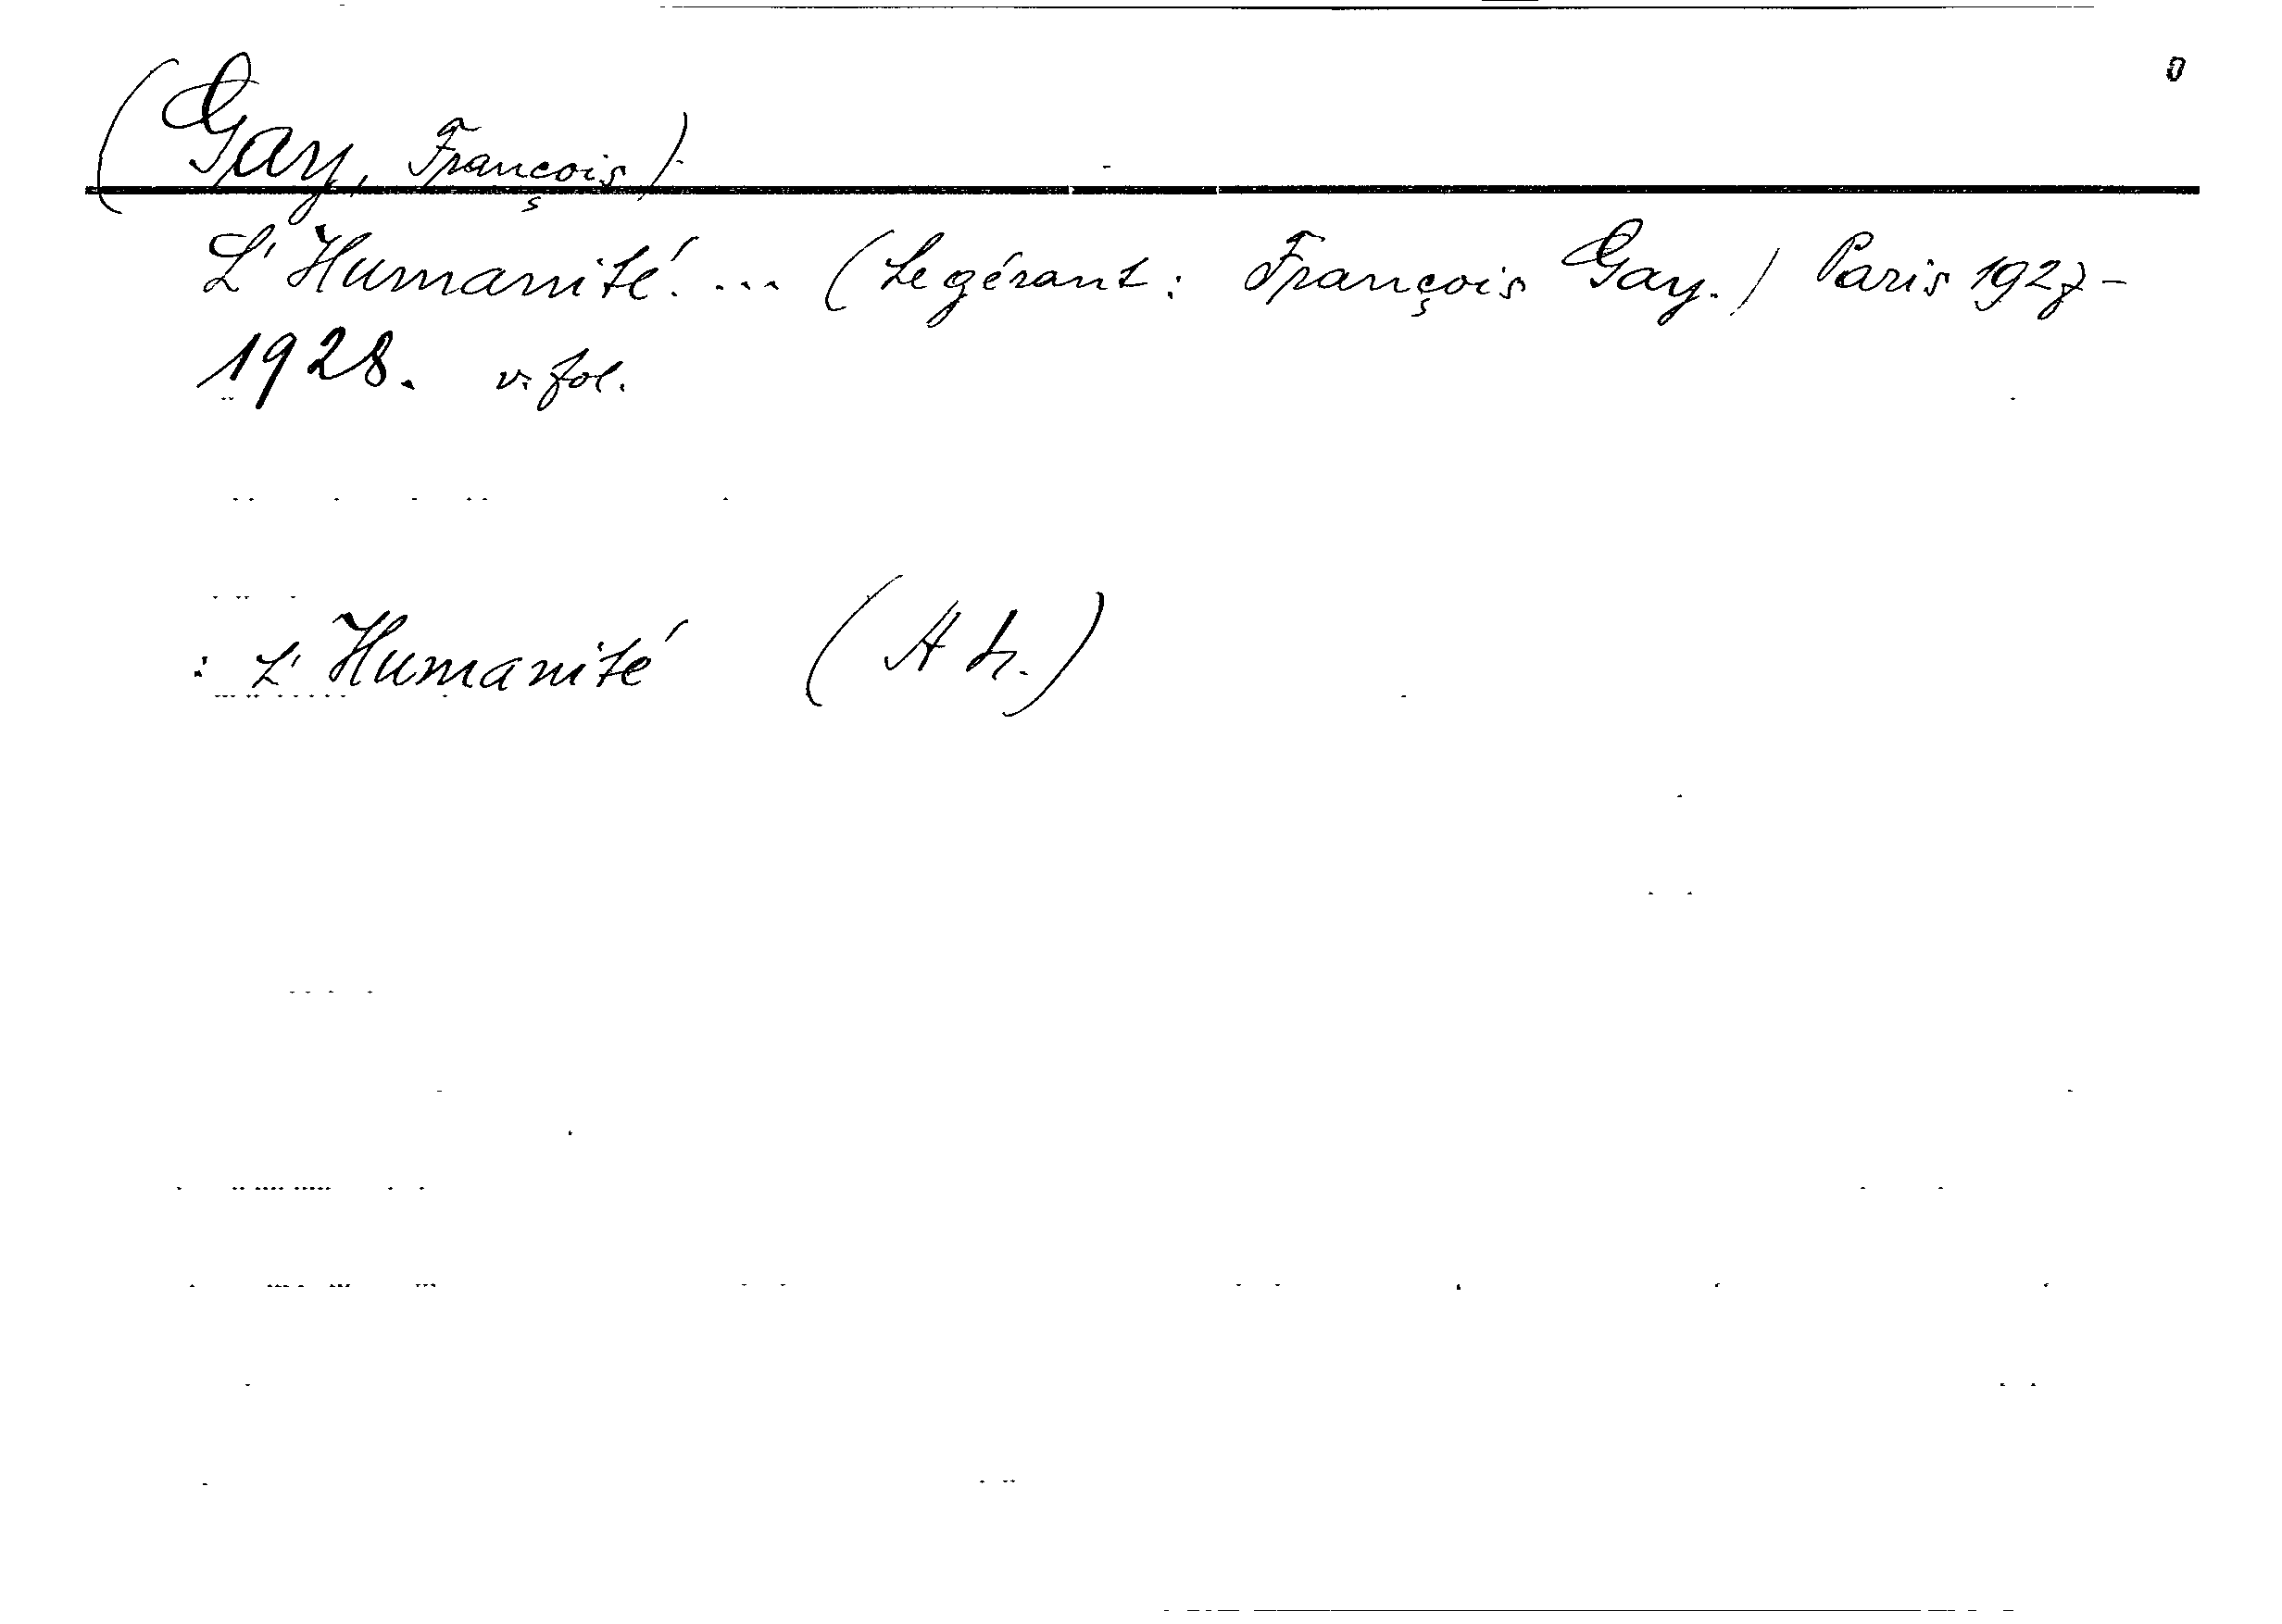 (Gay, François)
L'Humanité. ... (Le gérant: François Gay.) Paris 1927-
1928. v. fol.
: L'Humanité (A h.)